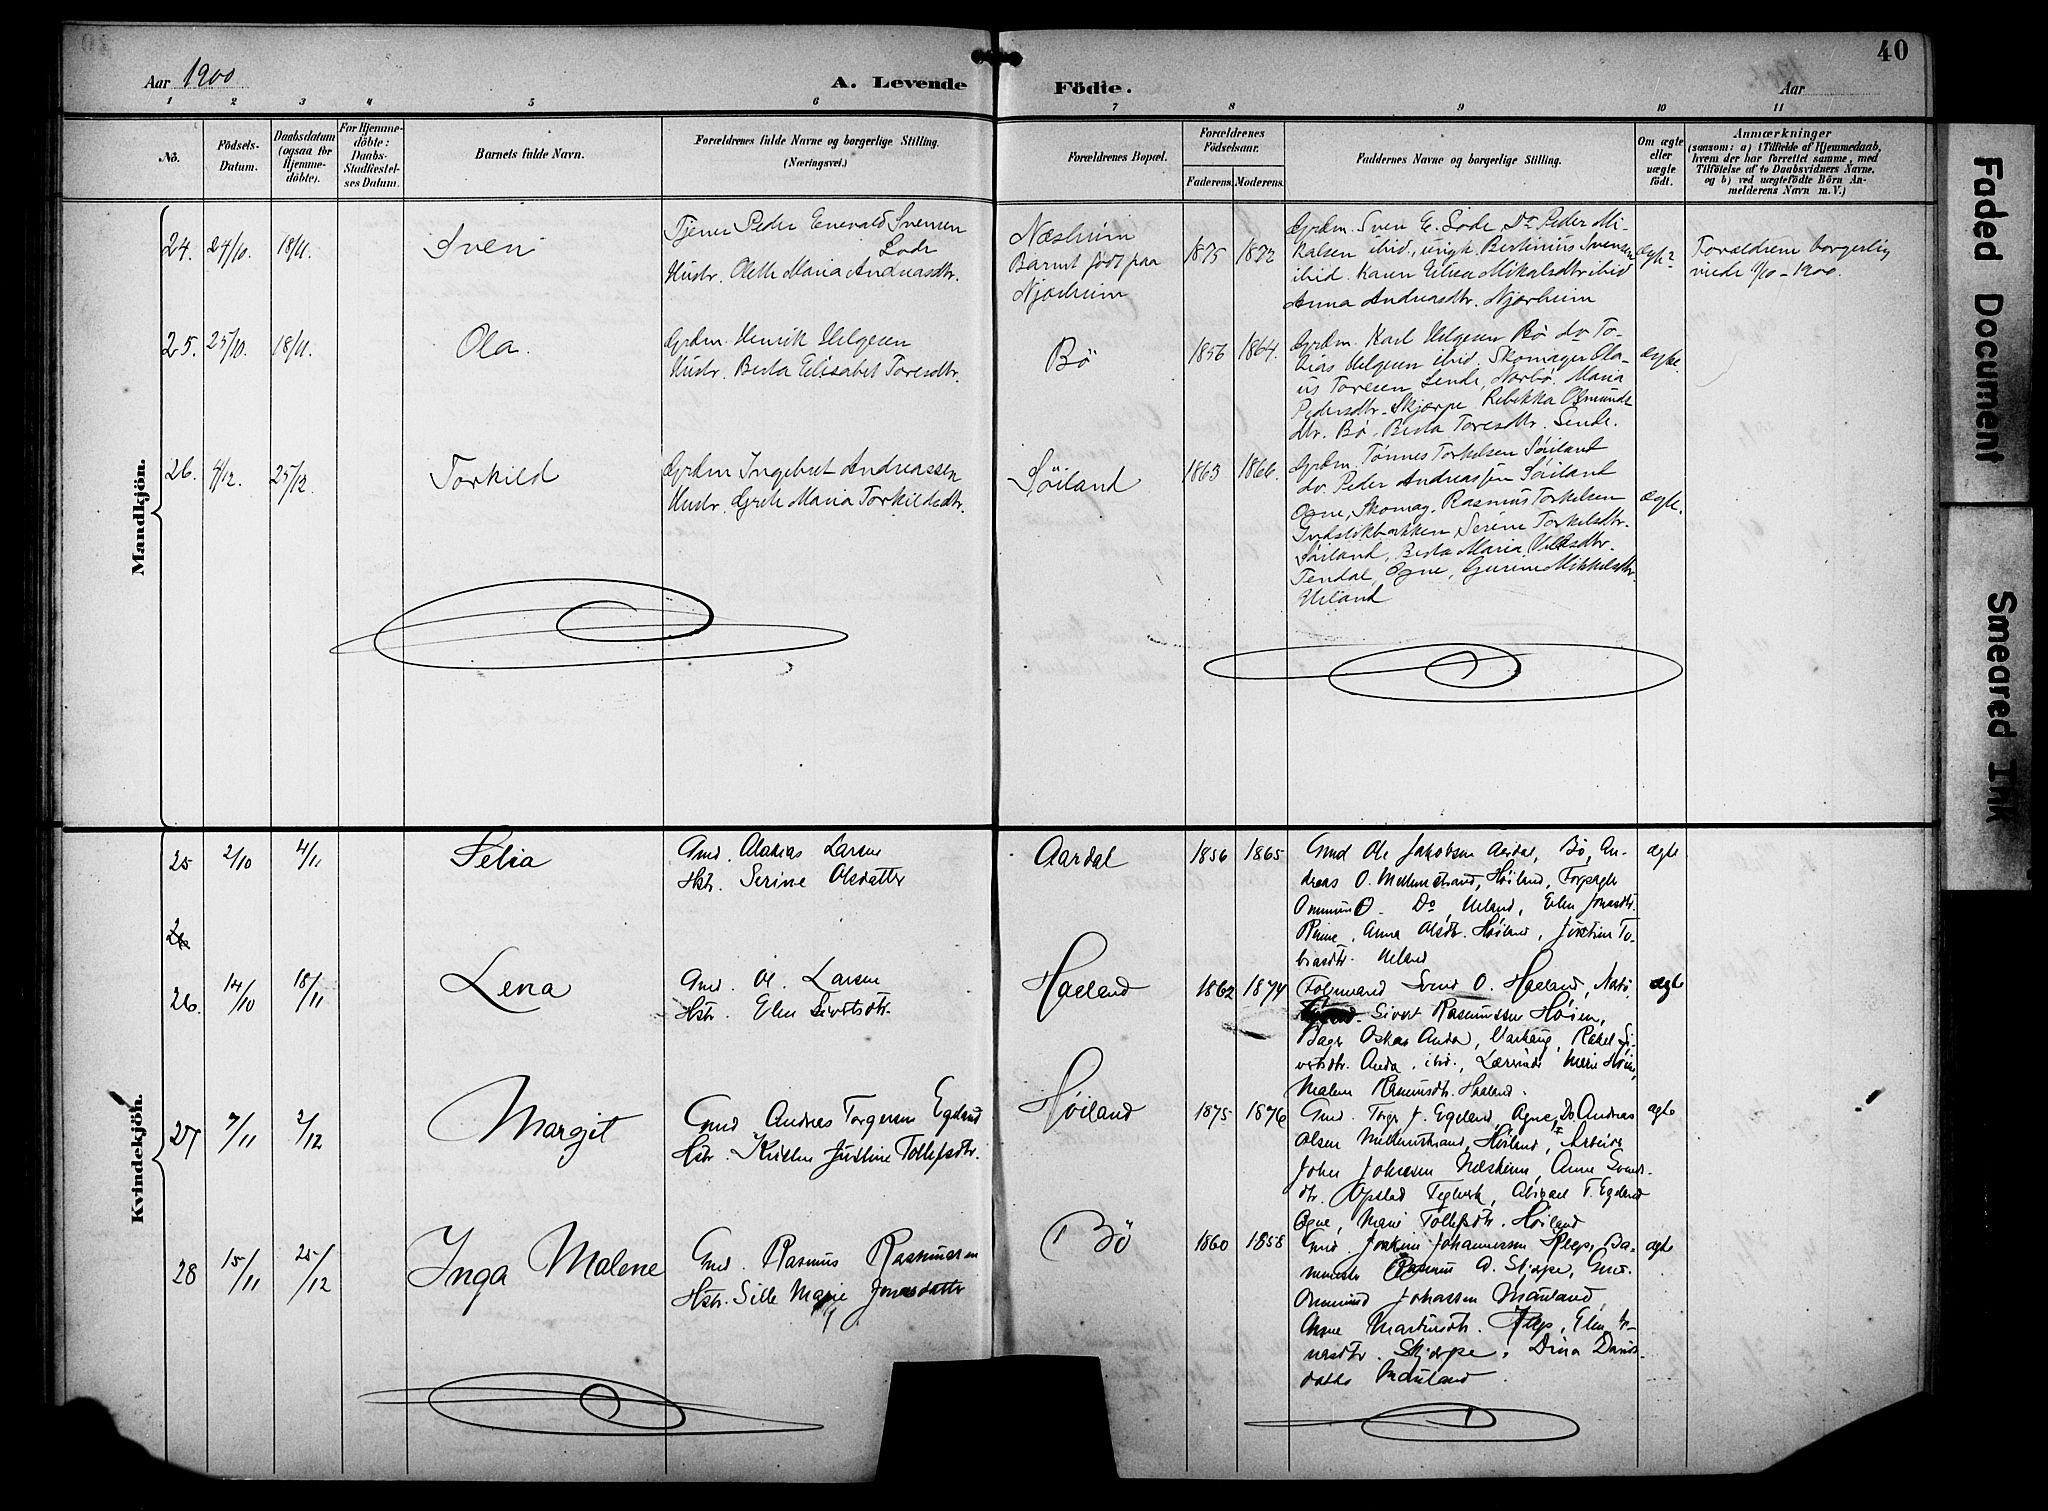 40
Aar 1900
A. Levende
Födte.
Aar
1 2 3 4 5 6 7 8 9 10 11
Nō.
Födsels-
Datum.
Daabsdatum
(ogsaa for
Hjemme-
döbte).
For Hjemme-
döbte:
Daabs-
Stadfæstel-
ses Datum.
Barnets fulde Navn.
Forældrenes fulde Navne og borgerlige Stilling.
(Næringsvei.)
Forældrenes Bopæl.
Forældrenes
Födselsaar.
Faderens. Moderens.
Faddernes Navne og borgerlige Stilling.
Om ægte
eller
uægte
födt.
Anmærkninger
(saasom: a) i Tilfælde af Hjemmedaab,
hvem der har forrettet samme, med
Tilföielse af to Daabsvidners Navne,
og b) ved uægtefödte Börn An-
melderens Navn m. V.)
Mandkjön.
24. 24/10 18/11. Sven
Tjener Peder Enevald Svensen
Lode
Hustr. Olette Maria Andreasdtr.
Næsheim
Barnet født paa
Njærheim
1875 1872
Grdm. Sven E. Lode, Do Peder Mi-
kalsen ibid, ungk. Bertinius Svensen
ibid. Karen Elisa Mikalsdtr ibid
Anna Andreasdtr. Njærheim
ægte
Forældrene borgerlig
viede 9/10 - 1900.
25. 25/10. 18/11. Ola.
Grdm. Henrik Helgesen
Hustr. Berta Elisabet Toresdtr.
Bö
1856 1864.
Grdm. Karl Helgesen Bö do To-
bias Helgesen ibid. Skomager Ola-
us Toresen Lende, Norbø. Maria
Pedersdtr. Skjærpe, Rebekka Osmunds-
dtr. Bö, Berta Toresdtr. Lende.
ægte.
26. 4/12. 25/12. Torkild
Grdm Ingebret Andreassen
Hustr. Grete Maria Torkildsdtr.
Söiland
1863 1866.
Grdm. Tönnes Torkelsen Söiland
do. Peder Andreassen Söiland
Ogne, Skomag. Rasmus Torkelsen
Serine Torkelsdtr.
Söiland, Berta Maria
Ogne, Gurine Mikkelsdtr.
Ueland
ægte.
Kvindekjön.
25 2/10 4/11 Selia
Gmd. Larsen
Hstr. Serine Olsdatter
Aardal
1856 1865
Gmd Ole Jakobsen Aardal, Bø, An-
dreas O. Mellemstrand, Høiland, Forpagter
Do, Ueland, Elen Jonasdtr.
Anna Olsdtr. Høiland, To-
biasdtr. Ueland
ægte
26
26. 14/10 18/11 Lena
Gmd. Ol. Larsen
Hstr. Elen Sivertsdtr.
Haaland
1862 1874
Svend O. Haaland,
Sivert Rasmussen Høien,
Bager Oskar Anda, Varhaug, Rakel Si-
vertsdtr. Anda, ibid., Marie Høien,
Malene Rasmusdtr. Haaland.
ægte
27 7/11 2/12 Margit
Gmd Andreas Torgersen Egeland
Hstr. Justine Tollefsdtr.
Høiland
1875 1876
Gmd. Torger J. Egeland, Ogne, Do Andreas
Olsen Mellemstrand, Høiland, Arbeider
John Johnsen Næsheim, Anne Svends-
dtr. Opstad Teglverk, Abigael T. Egeland
Ogne, Marie Tollefsdtr. Høiland
ægte
28 15/11 25/12 Inga Malene
Gmd. Rasmus Rasmussen
Hstr. Sille Marie Jonasdatter
Bö
1860 1858
Gmd. Joakim Johannessen Ba-
nemester Skjærpe, Gmd.
Osmund Mauland,
Anne Martinsdtr. Elen Jo-
nasdtr. Skjærpe, Dina Davids-
datter Mauland.
ægte
Faded Document
Smeared Ink